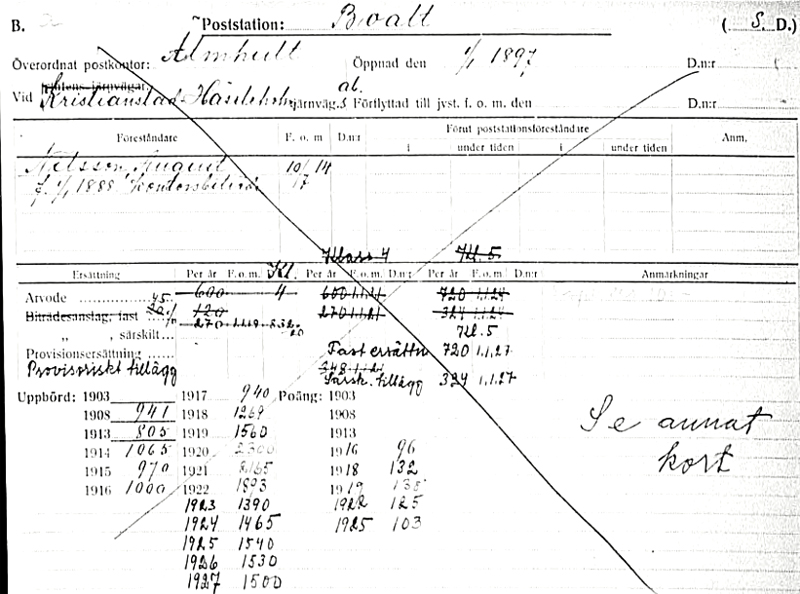 B. Poststation: Boalt ( S. D.)
Överordnat postkontor: Älmhult Öppnad den 1/1 1897 D.n:r
Vid Kristianstad-Hässleholms järnväg.s Förflyttad till jvst. f. o. m. den D.n:r
Föreståndare F. o. m D.n:r Förut poststationsföreståndare Anm.
i under tiden i under tiden
Nilsson, August 10/12 14
f. 1/1 1888
Klass 4 Kl. 5
Ersättning Per år F.o.m. Kl. Per år F.o.m. D.n:r Per år F.o.m. D.n:r Anmärkningar
Arvode 600 4 600 1.1.21 720 1.1.24
Biträdesanslag, fast 120 270 1.1.21 324 1.1.24
„ , särskilt 270 1.1.19 Kl. 5
Provisionsersättning Fast ersättn 720 1.1.27
Provisoriskt tillägg 348 1.1.21
Särsk. tillägg 324 1.1.27
Uppbörd: 1903 1917 940 Poäng: 1903
1908 941 1918 1269 1908
1913 805 1919 1560 1913
1914 1065 1920 2300 1916 96
1915 970 1921 2165 1918 132
1916 1000 1922 1893 1919 138
1923 1390 1922 125
1924 1465 1925 103
1925 1540
1926 1530
1927 1500
Se annat
kort